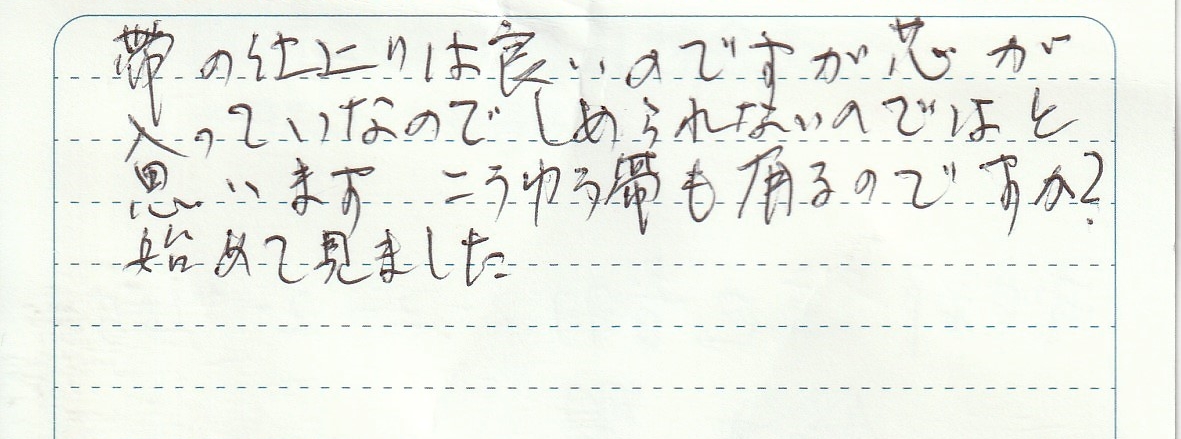 帯の仕上りは良いのですが芯が
入っていなのでしめられないのではと
思います こうゆう帯も有るのですか?
始めて見ました